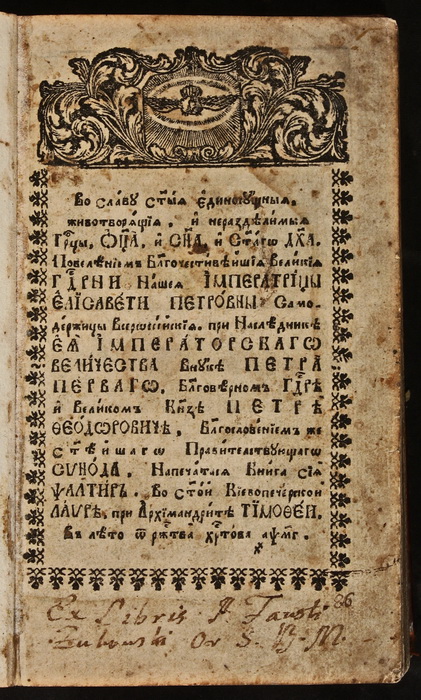 Во славу ст҃ыя единосущныя,
животворящїя, и нераздѣлимыя
Трⷪ҇цы, Ѻц҃а, и Сн҃а, и Ст҃агѡ Дх҃а.
Повелѣнїемъ Бл҃гочестивѣйшїѧ Великїѧ
Гдⷭ҇рни нашея ІМПЕРАТРІЦЫ
ЕЛІСАВЕТИ ПЕТРОВНЫ Само-
держицы Всерѡссїйскїя. при Наслѣдникѣ
ЕѦ ІМПЕРАТОРСКАГѠ
ВЕЛИЧЕСТВА Внукѣ ПЕТРА
ПЕРВАГѠ, Бл҃говѣрномъ Гдⷭ҇рѣ
и Великомъ Кн҃зѣ ПЕТРѢ
ѲЕОДѠРОВИЧѢ, Бл҃гословенїемъ же
ст҃ѣйшагѡ Правителствующагѡ
СѴНОДА. Напечатася Книга сїя
ѰАЛТИРЬ. Во ст҃ой Кїевопечерской
ЛАѴРѢ, при Архїмандритѣ ТІМОѲЕИ.
Въ лѣто ѿ ржⷭ҇тва хрⷭ҇това
Ex Libris 86
Or S. B. M.